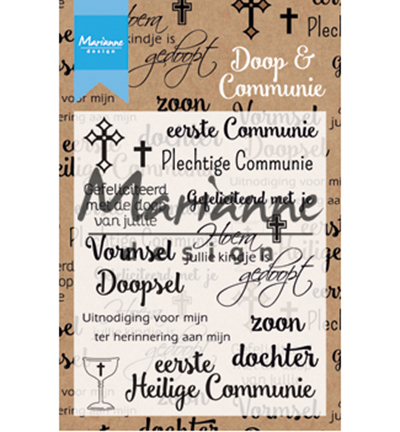 Marianne
design
Hoera
kindje is
gedoopt
Doop &
Communie
voor mijn
zoon
eerste Communie
Plechtige Communie
Gefeliciteerd
met de doop
van jullie
Gefeliciteerd met je
Marianne
design
Hoera
jullie kindje is
gedoopt
Vormsel
Doopsel
Uitnodiging voor mijn
ter herinnering aan mijn
zoon
dochter
eerste
Heilige Communie